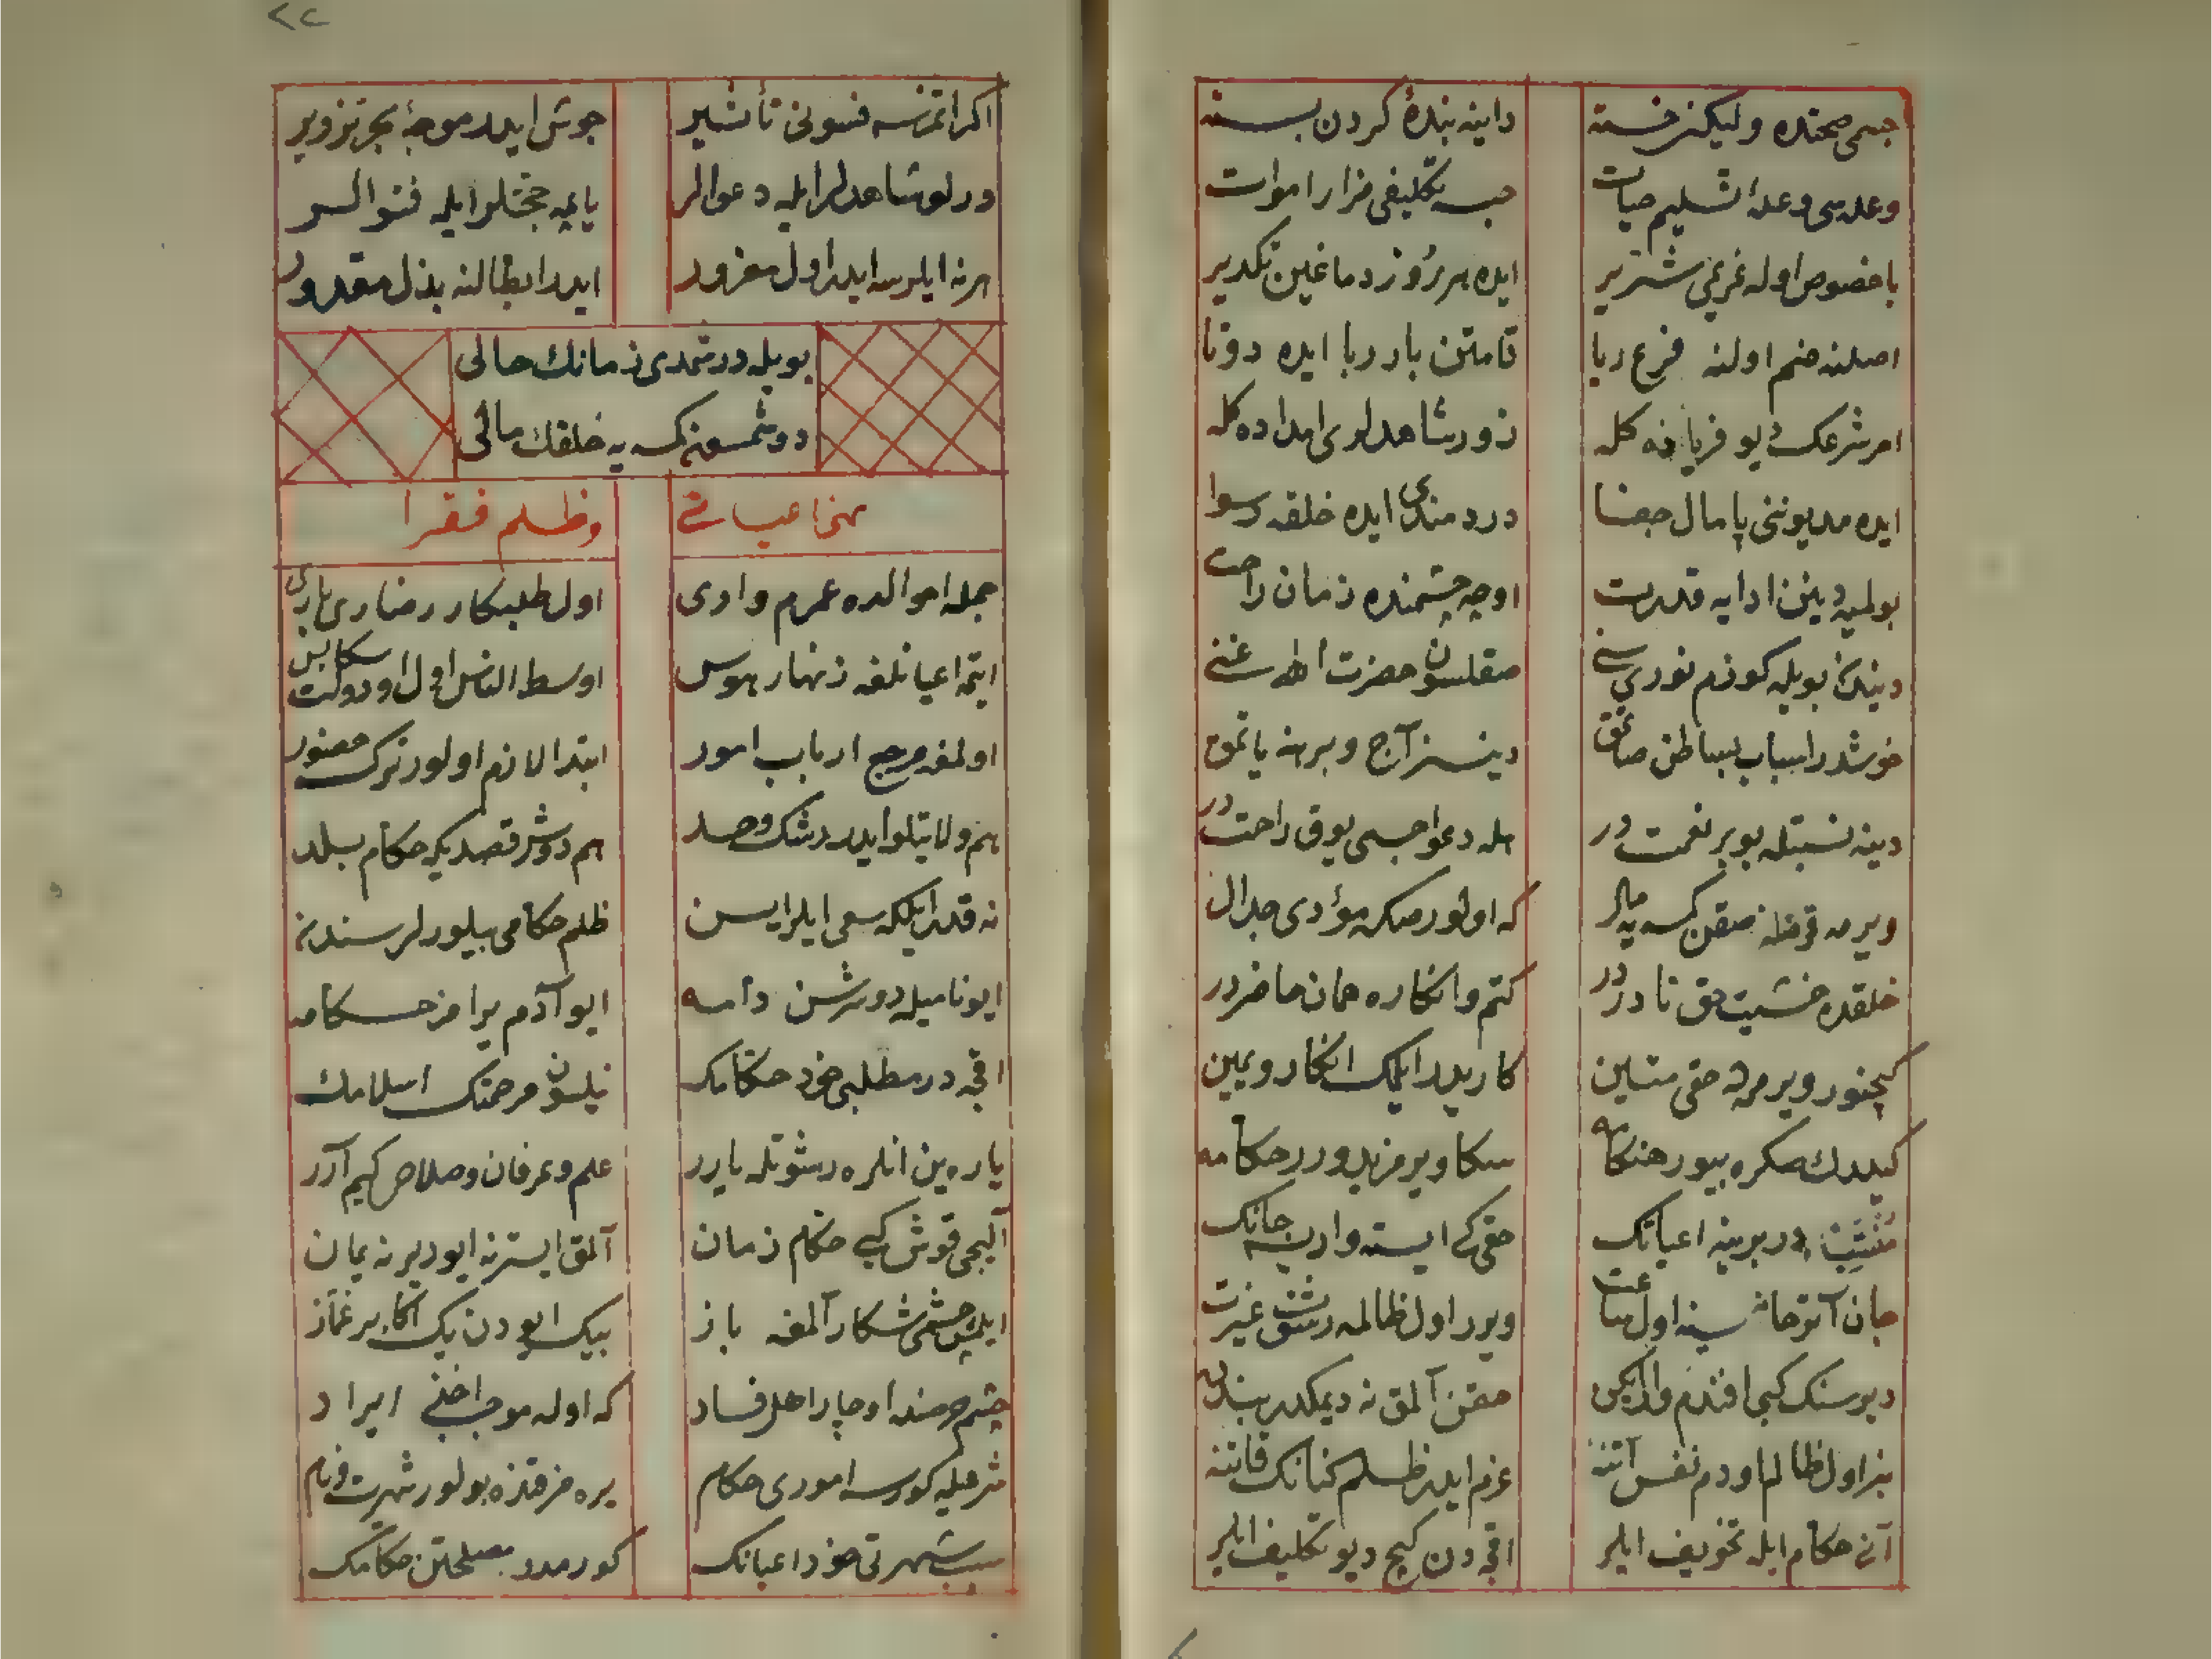 جسمی صحتده ولیکن خسته
داینه بندهٔ کردن بسته
وعده‌سی وعدهٔ تسلیم حیات
حبسه تکلیفی مزار اموات
باخصوص اوله غریمی شریر
ایده هر روز دماغین تکدیر
اصلنه ضم اولنه فرع ربا
قامتن بار ربا ایده دوتا
امر شرعک دیو فریاده کله
زور شاهدلری امداده کله
ایده مدیوننی پامال جفا
دردمندی ایده خلقه رسوا
بولمیه دینن ادایه قدرت
اوچه چشمنده زمان راحت
دیندن بویله کوزم نوری سنی
صقلسون حضرت الله غنی
خوشدر اسباب بساطن صاتمق
دینسز آج و برهنه یاتمق
دینه نسبتله بو بر نعمتدر
هله دعواجیسی یوق راحتدر
ویرمه قرضله صقن کسه‌یه مال
که اولور صکره مؤدی جدال
خلقده خشیت حق نادردر
کتم و انکاره همان حاضردر
کیچنور ویرمه‌دن حقی متین
کار ایدر ایلمک انکار و یمین
کیدلدک صکره بیور حنکامه
سکا ویرمز یدورر حکامه
متشبث در برینه اعیانک
حقکی ایسته وار ایسه جانک
جان آتوحانه سینه اول ساعت
ویرر اول ظالمه رشوت غیرت
دیو سنک کبی افندم وار ایکن
حقن آلمق نه دیمکدر بندن
بنر اول ظالم اودم نفس آتنه
عزم ایدر ظلم کنانک قاتنه
آنی حکام ایله تخویف ایلر
اقچه‌دن کچ دیو تکلیف ایلر
اکر اتمزسه فسونی تأثیر
جوش ایدر موجهٔ بحر تزویر
درلو شاهدلر ایله دعوالر
یاعه حجتلر ایله فتوالر
هرنه ایلرسه ایدر اول مغرور
ایدر ابطالنه بذل مقدور
بویله در شمدی زمانک حالی
دوشمسون کسه‌یه خلقک مالی
نهی اعیانی
وظلم فقرا
جمله احوالده عمرم واری
اول طلبکار رضای باری
ایتمه اعیانلغه زنهار هوس
اوسط الناس اول او دولت سکا بس
اولمغه مرجع ارباب امور
ابتدا لازم اولور ترک حضور
هم ولایتلو ایدر رشک و حسد
هم دوشر قصدیکه حکام بلد
نه قدر ایلکه سعی ایلر ایسن
ظلم حکامی بیلورلر سندن
ایو نامیله دوشرسن دامه
ایو آدم یرامز حکامه
اقچه در مطلبی خود حکامک
نیلسون مرحمتک اسلامک
یاره‌یین انلره رشوتله یارر
علم و عرفان و صلاح کیم آرر
آلیجی قوش کبی حکام زمان
آلمق ایستر نه ایو دیر نه یمان
ایلمش چشمی شکار آلمغه باز
بیک ایودن یک آکا بر غماز
چشم حرصنده اوچار اهل فساد
که اوله موجب اخذ ایراد
شرعیله کورسه اموری حکام
یره‌مز قنده بولور شهرت و نام
سبب شهرتی خود اعیانک
کورمدر مصلحتن حکامک